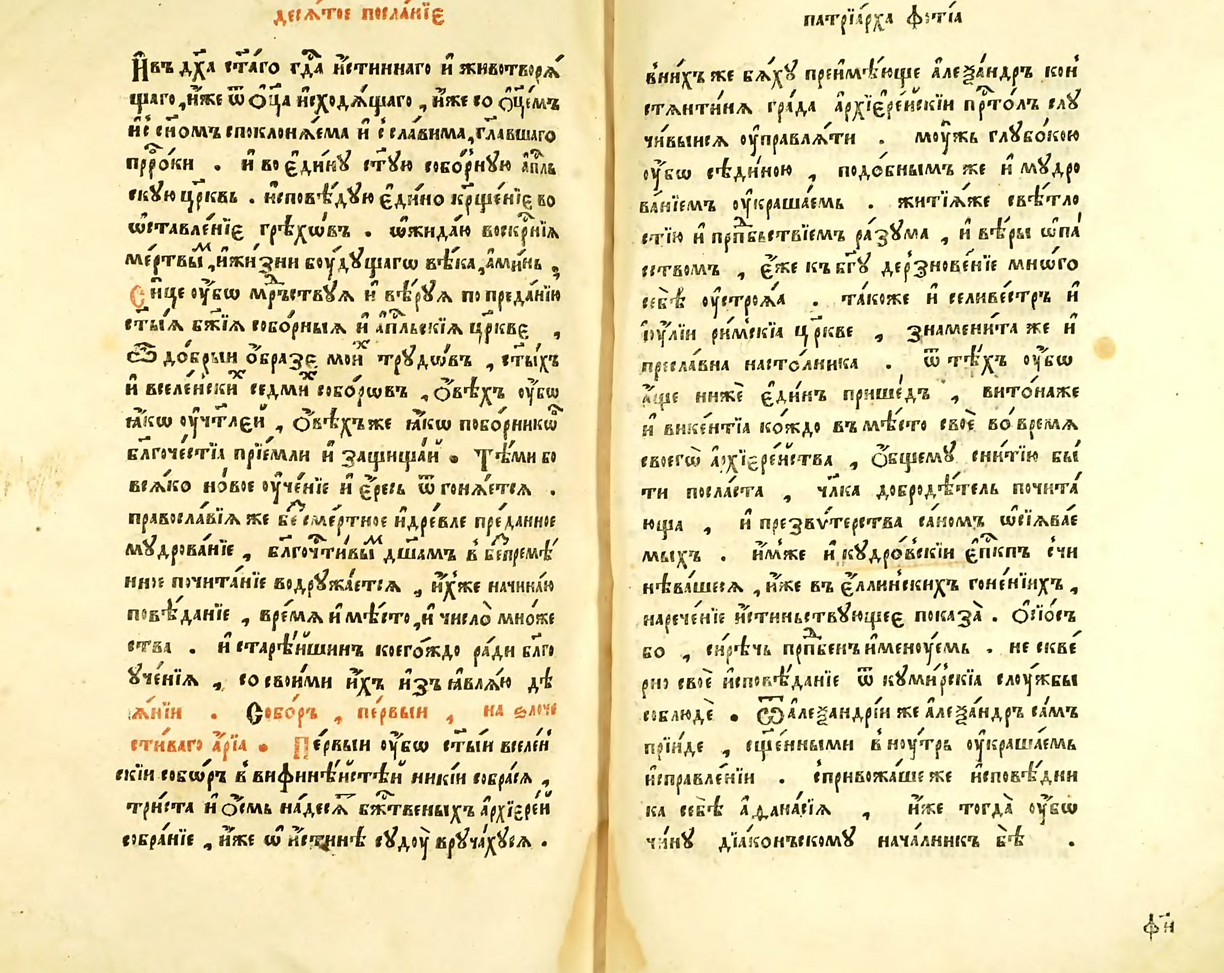 десѧ́тое посла́нїе
И҆въ дх҃а ст҃а́го гд҇а и҆́стиннаго и҆ животворѧ́
щаго, и҆́же ѿ ѻ҆ц҃а и҆сходѧ́щаго , и҆́же со ѻ҆ц҃е́мъ
и҆ с҃ сн҃омъ споклонѧ́ема и҆ сславима, гл҃авшаго
прⷪ҇ро́ки . и҆ во є҆ди́нꙋ ст҃ꙋ́ю собо́рнꙋю а҆пⷭ҇ль
скꙋю цр҃ковь . и҆сповѣ́дꙋю є҆ди́но кр҃ще́нїе во
ѡ҆ставле́нїе грѣхѡ́въ . ѡ҆жида́ю воскрⷭ҇нїѧ
ме́ртвыⷯ, и҆ жи́зни боꙋ́дꙋщагѡ вѣ́ка, а҆ми́нь ,
Си́це ᲂу҆́бѡ мрⷣъствꙋѧ и҆ вѣ́рꙋѧ по преда́нїю
ст҃ы́ѧ бж҃їѧ собо́рныѧ и҆ а҆пⷭ҇льскїѧ цр҃кве ,
Ѽ до́брыи ѻ҆́бразе мои́ⷯ трꙋдѡ́въ , ст҃ы́хъ
и҆ вселе́нскиⷯ седми́ⷯ собо́рѡвъ , ѻ҆́вѣхъ ᲂу҆́бѡ
ꙗ҆́кѡ ᲂу҆чт҃лей , ѻ҆́вѣхъже ꙗ҆́кѡ побо́рникѡⷡ
бл҃гоче́стїа прїе́мли и҆ защища́й . Тѣ́ми бо
всѧ́ко но́вое ᲂу҆че́нїе и҆ є҆́ресь ѿ гонѧ́етсѧ .
правосла́вїѧ же бесме́ртное и҆ дре́вле пре́данное
мꙋдрова́нїе , бл҃гочⷭ҇ти́выⷨ дш҃амъ в беспремѣ́
нное почита́нїе водрꙋжа́етсѧ , и҆́хже начина́ю
повѣ́данїе , вре́мѧ и҆ мѣ́сто, и҆ число̀ мно́же
ства . и҆ старѣ́йшинъ коего́ждо ра́ди бл҃го
ꙋче́нїѧ , со свои́ми и҆́хъ и҆зъ ꙗ҆влѧ́ю дѣ
ѧ́нїи . Собо́ръ , пе́рвыи , на ѕлоче
сти́ваго а҆́рїа . Пе́рвыи ᲂу҆́бѡ ст҃ы́и вселе́н
скїи собѡ́ръ в вифинѣ́йстѣй нике́и собра́сѧ ,
три́ста и҆ ѻ҆́смь на́десѧⷮ бж҃твеныхъ а҆рхїере́й
собра́нїе , и҆́же ѡ҆ и҆́стинѣ сꙋдоу̀ врꙋча́хꙋсѧ .
патрїа́рха фѡ́тїа
в ни́хъ же бѧ́хꙋ преимꙋ́ющe а҆леѯа́ндръ кон
стѧнти́нѧ гра́да а҆рхїере́йскїи прⷭ҇то́лъ слꙋ
чи́выисѧ ᲂу҆правлѧ́ти . моу́жь глꙋбо́кою
ᲂу҆́бѡ сѣди́ною , подо́бнымъ же и҆ мꙋдро
ва́нїемъ ᲂу҆краша́емь . житїѧ́же свѣ́тло
стїю и҆ прпⷣбьствїемъ ра́зꙋма , и҆ вѣ́ры ѡ҆па́
сствомъ , є҆́же къ бг҃ꙋ дерзнове́нїе мно́го
себѣ̀ ᲂу҆стро́ѧ . та́коже и҆ селиве́стръ и҆
і҆ꙋ́лїи ри́мскїа цр҃кве , знамени́та же и҆
пресла́вна насто́лника . ѿ тѣ́хъ ᲂу҆́бѡ
а҆́ще нижѐ є҆ди́нъ прише́дъ , вито́наже
и҆ вике́нтїа ко́ждо въ мѣ́сто своѐ во́ время
своегѡ̀ а҆рхїере́йства , ѻ҆́бщемꙋ сни́тїю бы́
ти посла́ста , чл҃ка доброде́тель почита́
юща , и҆ презвѵ́терства са́номъ ѡ҆сїѧва́е
мыхъ . и҆́мже и҆ кꙋдро́вскїи є҆пⷭ҇кпъ счи
нѣва́шесѧ , и҆́же въ є҆́ллинскихъ гоне́нїихъ ,
нарече́нїе и҆́стиньствꙋющее показа̀ . Ѻ҆́сїосъ
бо , си́рѣчь прпⷣбенъ и҆меноу́емь . не скве́
рно своѐ и҆сповѣ́данїе ѿ кꙋми́рскїа слоу́жбы
соблюдѐ . Ѿ а҆леѯандрі́и же а҆леѯа́ндръ са́мъ
прїи́де , сщ҃е́нными внѹ́трь ᲂу҆краша́емь
и҆справле́нїи . спривожа́ше же и҆сповѣ́дни
ка себѣ̀ а҆ѳана́сїѧ , и҆́же тогда̀ ᲂу҆́бѡ
чи́нꙋ дїа́конъскомꙋ нача́лникъ бѣ̀ .
ф҃и